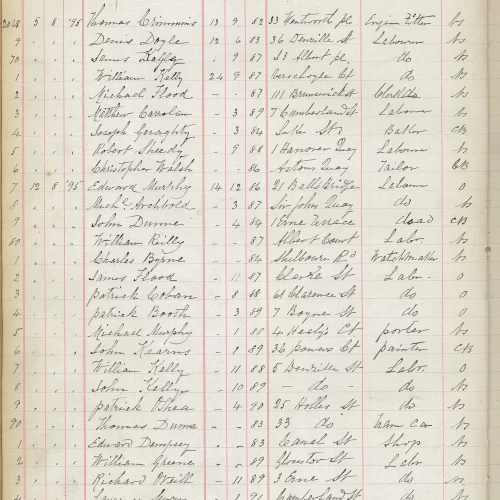 2068 5 8 '95 Thomas Cimmins 13 9 82 33 Wentworth pl Engine Fitter Ns
9 . . . Denis Doyle 12 6 83 36 Denzille St Labourer Ns
70 . . . James Kelly - 9 87 33 Albert pl, do Ns
1 . . . William Kelly 24 9 87 Ct do Ns
2 . . . Michael Flood - - 87 111 Brunswick St Ns
3 . . . Matthew Carolan - 3 89 7 Cumberland St Labourer Ns
4 . . . Joseph Geraghty - 3 84 St Baker CB
5 . . . Robert Sheedy - 9 88 1 Hanover Quay Labourer Ns
6 . . . Christopher Walsh - - 86 Astons Quay Tailor CB
7 12 8 '95 Edward Murphy 14 12 86 21 Balls Bridge Labourer 0
8 . . . Michl Archbold - 3 87 Sir Johns Quay do Ns
9 . . . John Dunne - 4 84 1 Erne Terrace dead CB
80 . . . William Reilly - - 87 Albert Court Labr. Ns
1 . . . Charles Byrne - - 84 Shelbourne Rd Watchmaker Ns
2 . . . James Flood - 11 87 Clarke St Labr. 0
3 . . . Patrick Coban - 8 88 61 Clarence St do 0
4 . . . Patrick Booth - 3 89 7 Boyne St do 0
5 . . . Michael Murphy - 1 88 4 Healy's Ct porter Ns
6 . . . John Kearns - 1 89 36 Powers Ct painter CB
7 . . . William Kelly - 11 88 5 Denzille St Labr. 0
8 . . . John Kelly - 10 89 - do - Ns
9 . . . Patrick O'Shea - 4 90 25 Holles St do Ns
90 . . . Thomas Dunne - - 83 33 do Tram Car Ns
1 . . . Edward Dempsey - - 83 Canal St Shop Ns
2 . . . William Greene - - 89 Gloucester St Labr Ns
3 . . . Richard - 11 89 3 Erne St do Ns
4 1 91 Cumberland St